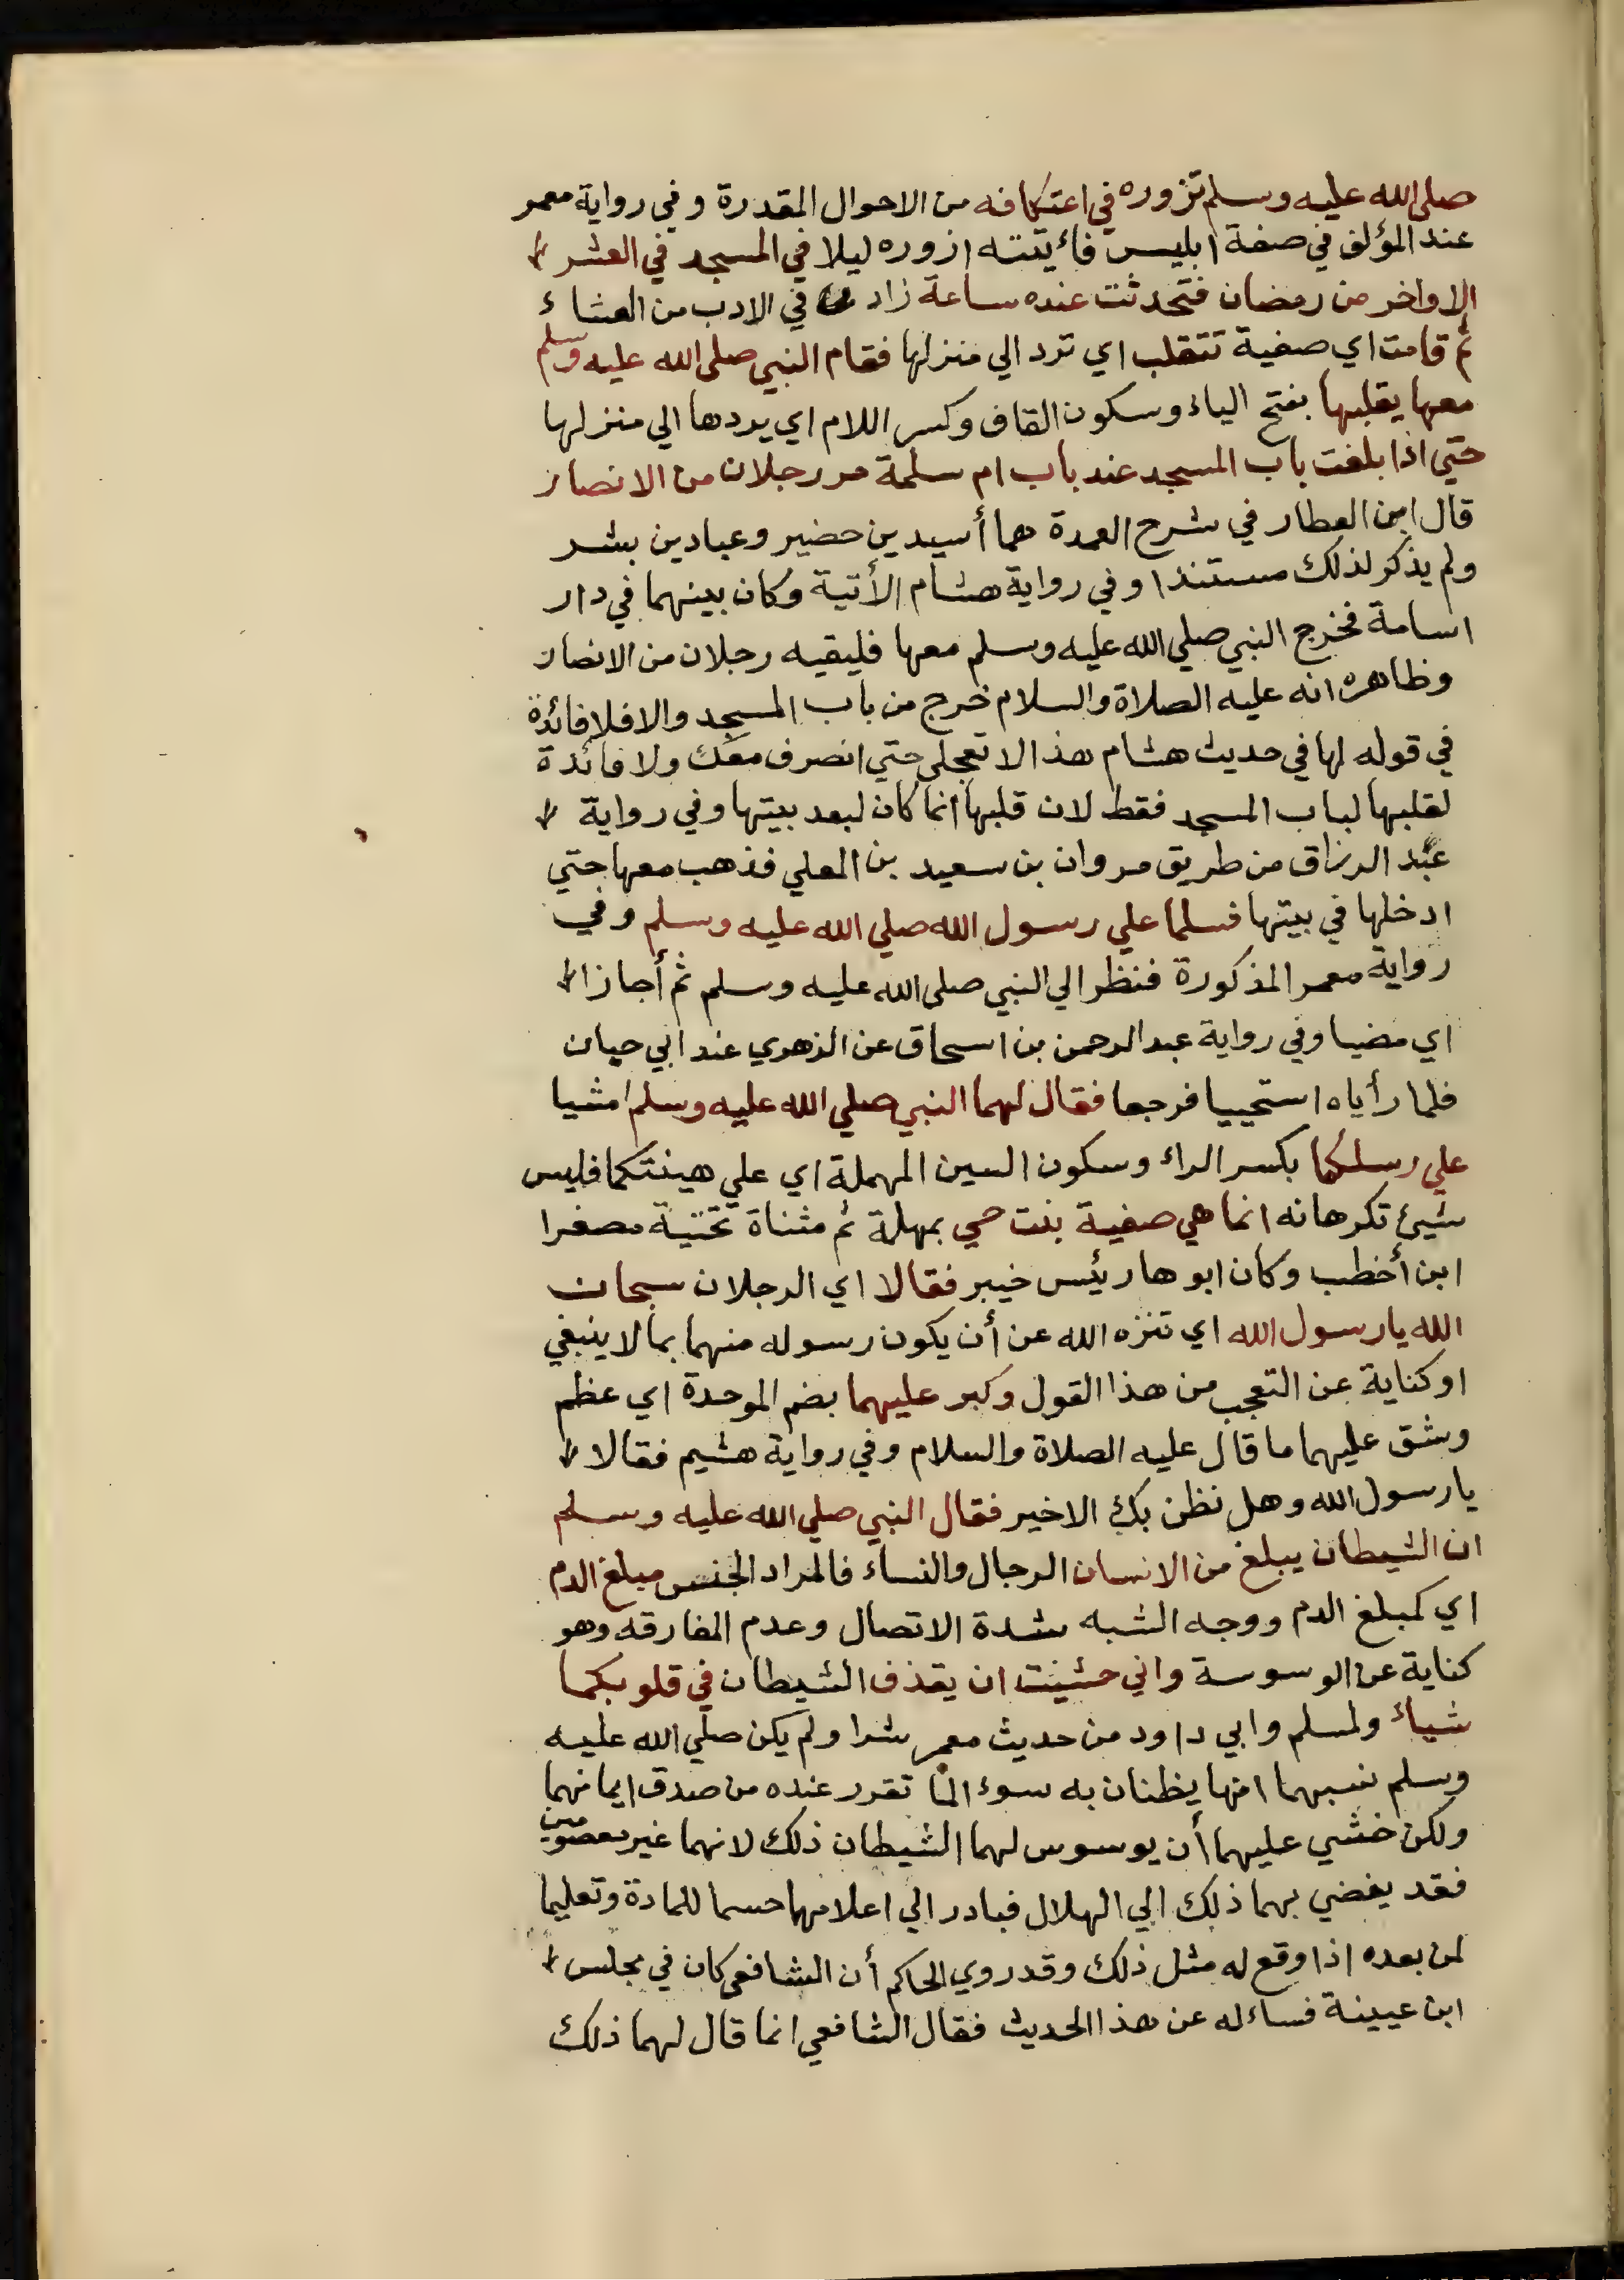 صلى الله عليه وسلم تزوره في اعتكافه من الاحوال المقدرة وفي رواية معمر
عند المؤلف في صفة ابليس فأتيته ازوره ليلا في المسجد في العشر
الاواخر من رمضان فتحدثت عنده ساعة زاد في الادب من العشاء
ثم قامت اي صفية تتقلب اي ترد الي منزلها فقام النبي صلى الله عليه وسلم
معها يقلبها بفتح الياء وسكون القاف وكسر اللام اي يردها الي منزلها
حتي اذا بلغت باب المسجد عند باب ام سلمة مر رجلان من الانصار
قال ابن العطار في شرح العمدة هما أسيد بن حضير وعباد بن بشر
ولم يذكر لذلك مستندا وفي رواية هشام الأتية وكان بيتهما في دار
اسامة فخرج النبي صلي الله عليه وسلم معها فليقيه رجلان من الانصار
وظاهره انه عليه الصلاة والسلام خرج من باب المسجد والا فلا فائدة
في قوله لها في حديث هشام هذا لا تعجلي حتي انصرف معك ولا فائدة
لقلبها لباب المسجد فقط لان قلبها انما كان لبعد بيتها وفي رواية
عبد الرزاق من طريق مروان بن سعيد بن المعلي فذهب معها حتي
ادخلها في بيتها فسلما علي رسول الله صلي الله عليه وسلم وفي
رواية معمر المذكورة فنظر الي النبي صلى الله عليه وسلم ثم أجازا
اي مضيا وفي رواية عبد الرحمن بن اسحاق عن الزهري عند ابي حيان
فلما رأياه استحييا فرجعا فقال لهما النبي صلي الله عليه وسلم امشيا
علي رسلكما بكسر الراء وسكون السين المهملة اي علي هينتكما فليس
شيئ تكرهانه انما هي صفية بنت حي بمهملة ثم مثناة تحتية مصغرا
ابن أخطب وكان ابوها رئيس خيبر فقالا اي الرجلان سبحان
الله يا رسول الله اي تنزه الله عن أن يكون رسوله منهما بما لا ينبغي
او كناية عن التعجب من هذا القول وكبر عليهما بضم الموحدة اي عظم
وشق عليهما ما قال عليه الصلاة والسلام وفي رواية هشيم فقالا
يا رسول الله وهل نظن بك الا خير فقال النبي صلي الله عليه وسلم
ان الشيطان يبلغ من الانسان الرجال والنساء فالمراد الجنس مبلغ الدم
اي كمبلغ الدم ووجه الشبه شدة الاتصال وعدم المفارقه وهو
كناية عن الوسوسة واني خشيت ان يقذف الشيطان في قلوبكما
شياء ولمسلم وابي داود من حديث معمر شرا ولم يكن صلي الله عليه
وسلم نسبهما انهما يظنان به سوء لما تقرر عنده من صدق ايمانهما
ولكن خشي عليهما أن يوسوس لهما الشيطان ذلك لانهما غير معصومين
فقد يفضي بهما ذلك الي الهلال فبادر الي اعلامهما حسما للمادة وتعليما
لمن بعده اذا وقع له مثل ذلك وقد روي الحاكم أن الشافعي كان في مجلس
ابن عيينة فسائله عن هذا الحديث فقال الشافعي انما قال لهما ذلك